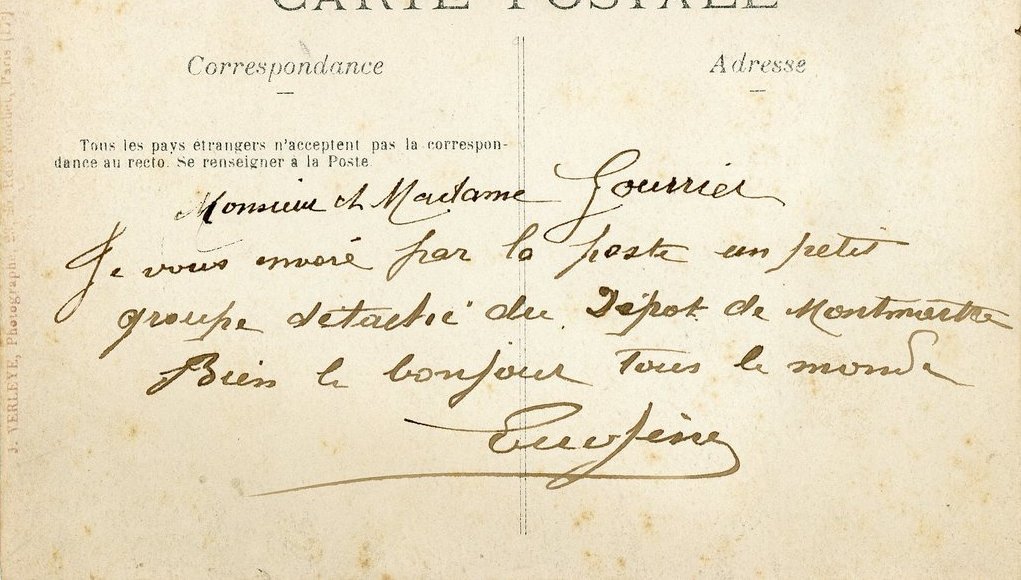 CARTE POSTALE
Correspondance
Adresse
Tous les pays étrangers n'acceptent pas la correspon-
dance au recto. Se renseigner à la Poste.
Monsieur et Madame Gourrier
Je vous envoié par la poste un petit
groupe détaché du Dépot de Montmartre
Bien le bonjour tous le monde
J. VERLEYE, Photographe, Paris